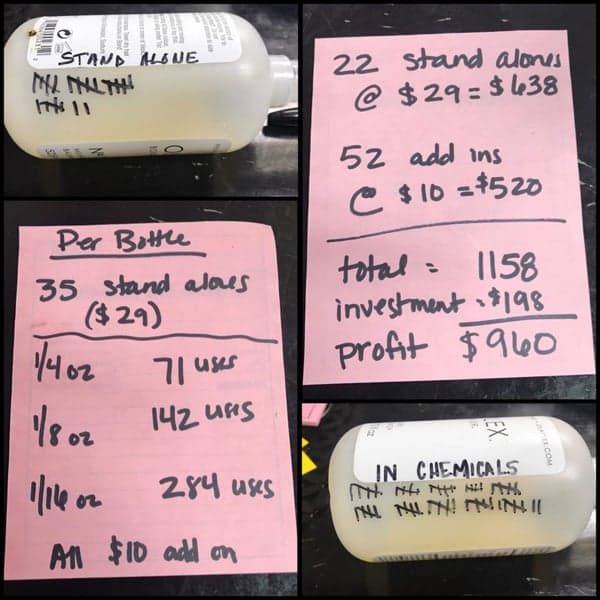 STAND ALONE
22 stand alones
@ $29 = $638
52 add ins
@ $10 = $520
total = 1158
investment - $198
profit $960
Per Bottle
35 stand alones
($29)
1/4 oz 71 uses
1/8 oz 142 uses
1/16 oz 284 uses
All $10 add on
EX
IN CHEMICALS